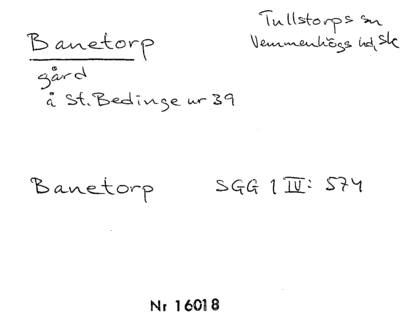 Banetorp
Tullstorps sn
Vemmenhögs hd, Sk
gård
å St. Bedinge nr 39
Banetorp SGG 1 IV: 574
Nr 16018